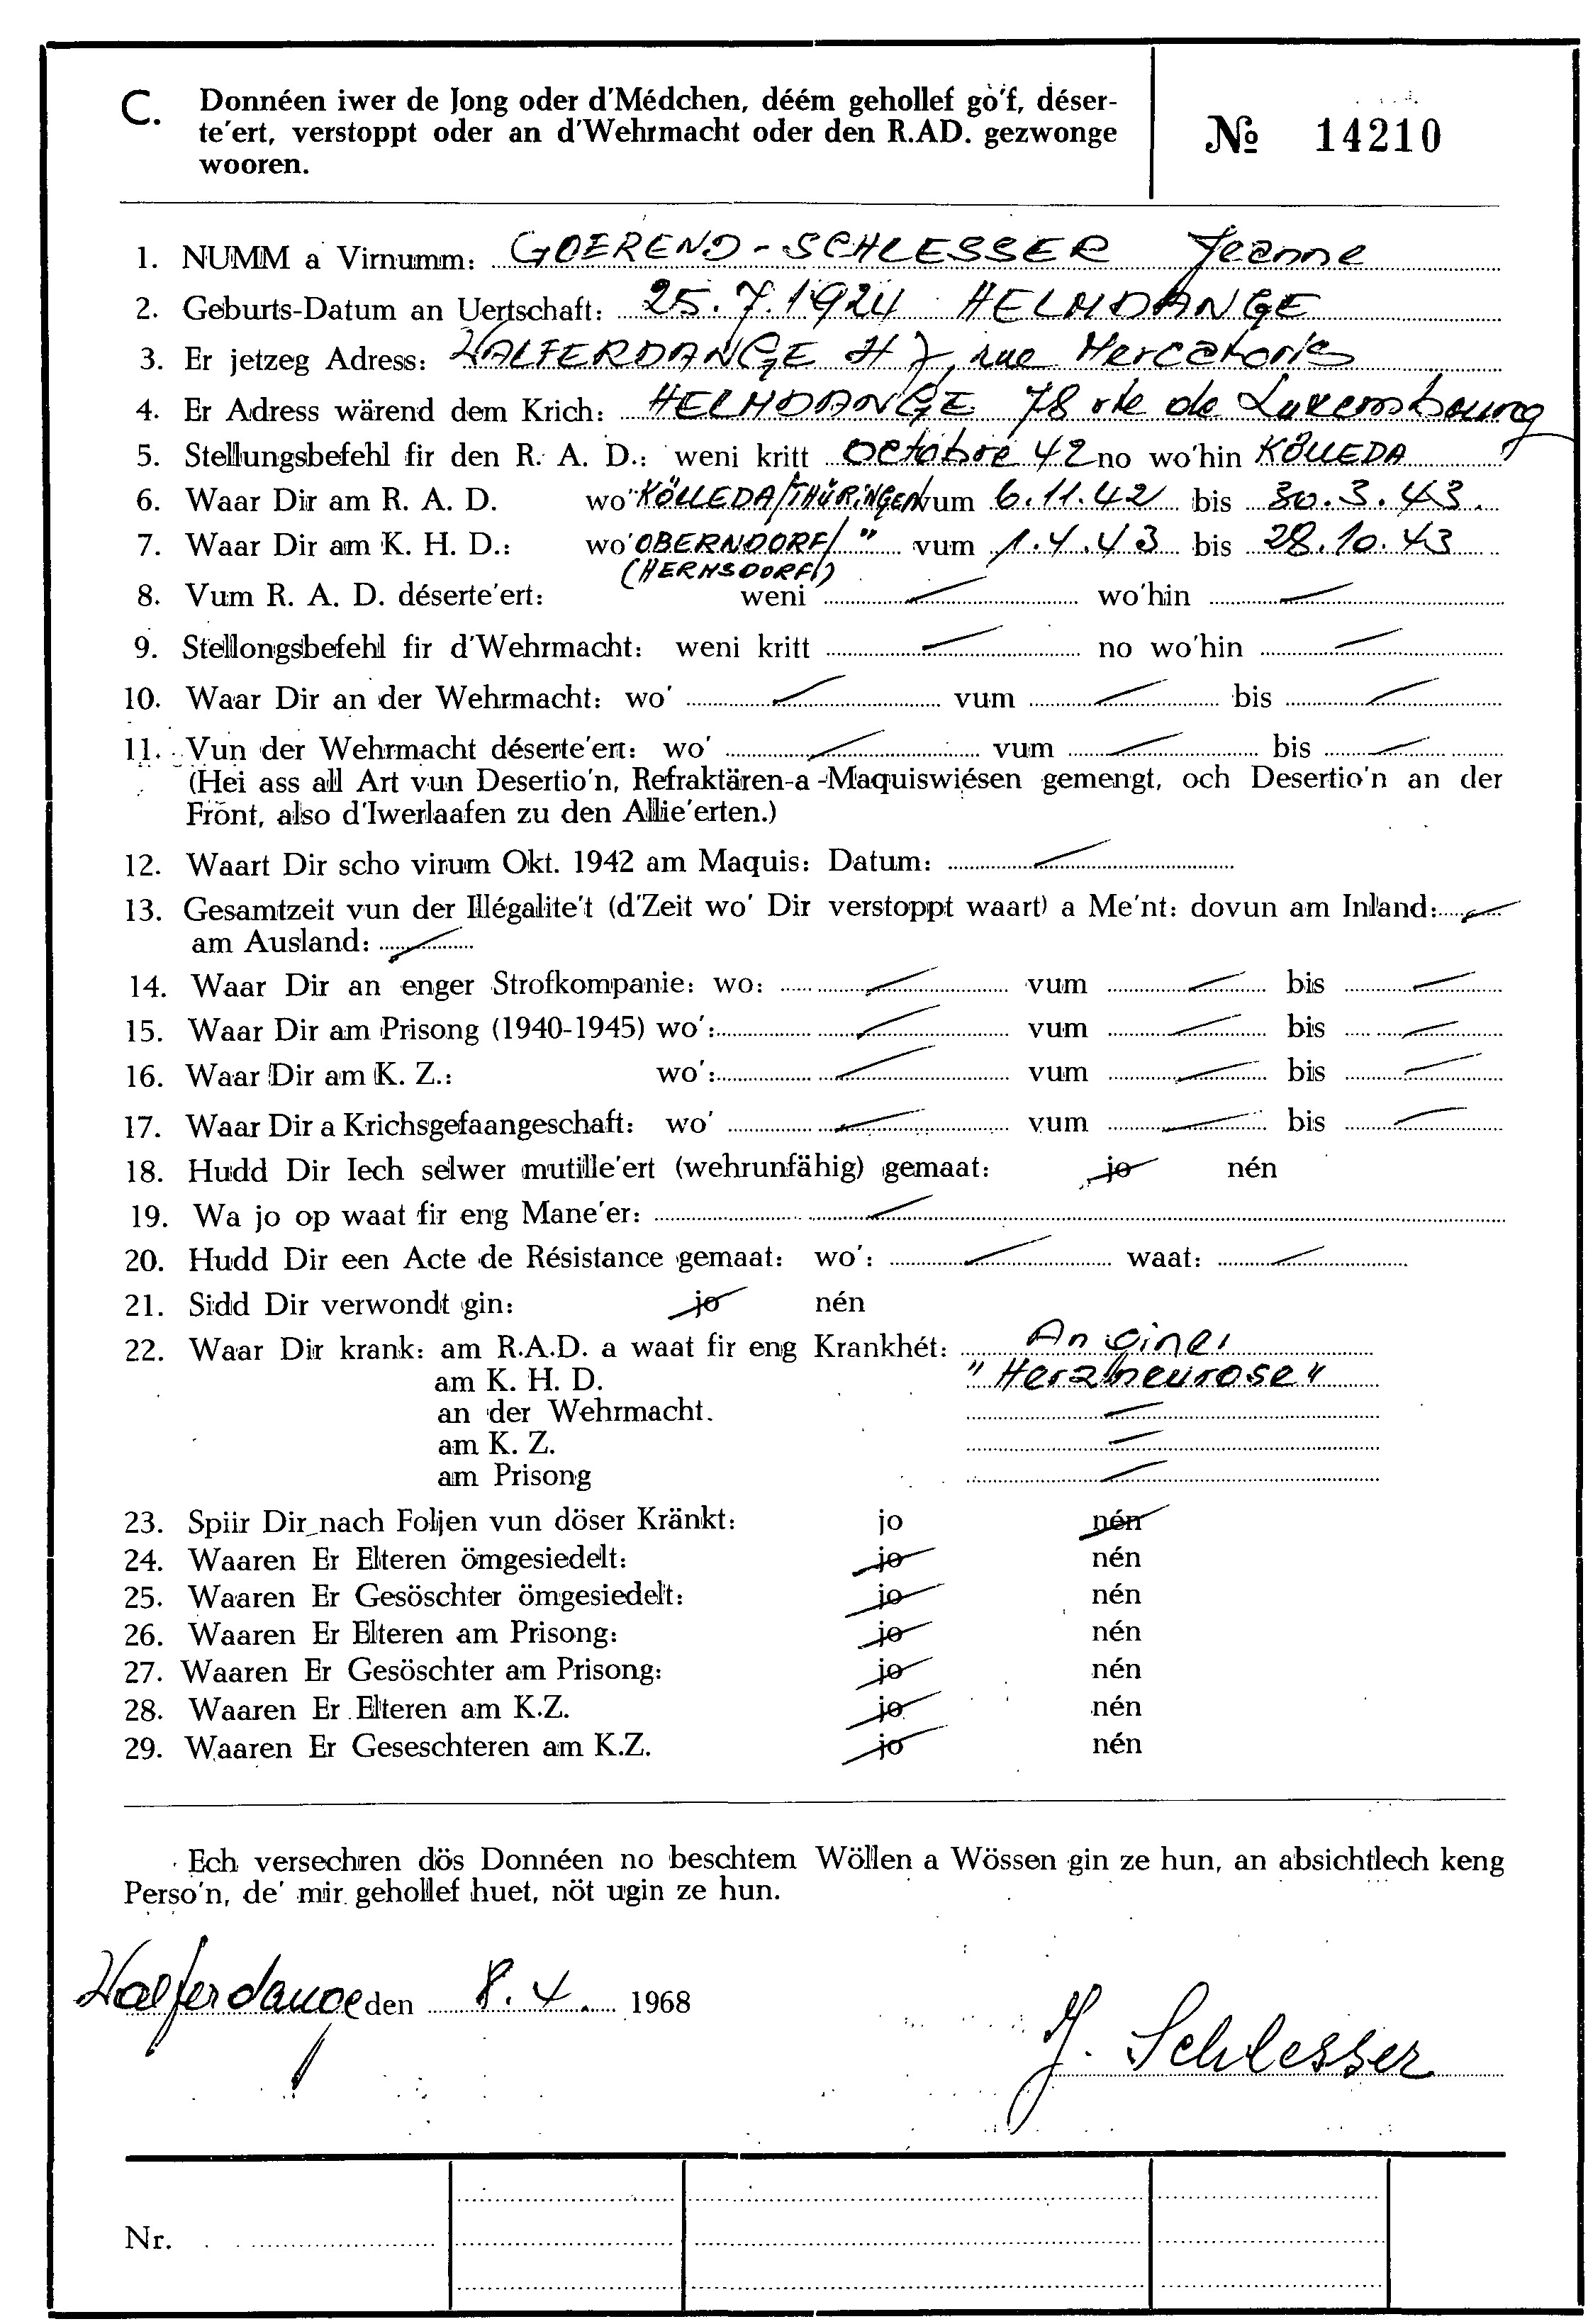 C. Donnéen iwer de Jong oder d'Médchen, déém gehollef go'f, déser-
te'ert, verstoppt oder an d'Wehrmacht oder den R.AD. gezwonge
wooren.
№ 14210
1. NUMM a Virnumm: GOEREND - SCHLESSER Jeanne
2. Geburts-Datum an Uertschaft: 25.7.1924 HELMDANGE
3. Er jetzeg Adress: WALFERDANGE 47, rue Mercatoris
4. Er Adress wärend dem Krich: HELMDANGE 78 rte de Luxembourg
5. Stellungsbefehl fir den R. A. D.: weni kritt octobre 42 no wo'hin KÖLLEDA
6. Waar Dir am R. A. D. wo' KÖLLEDA/THÜRINGEN vum 6.11.42 bis 30.3.43.
7. Waar Dir am K. H. D.: wo' OBERNDORF/ " vum 1.4.43 bis 28.10.43
(HERMSDORF)
8. Vum R. A. D. déserte'ert: weni — wo'hin —
9. Stellongsbefehl fir d'Wehrmacht: weni kritt — no wo'hin —
10. Waar Dir an der Wehrmacht: wo' — vum — bis —
11. Vun der Wehrmacht déserte'ert: wo' — vum — bis —
(Hei ass all Art vun Desertio'n, Refraktären-a-Maquiswiésen gemengt, och Desertio'n an der
Front, also d'Iwerlaafen zu den Allie'erten.)
12. Waart Dir scho virum Okt. 1942 am Maquis: Datum: —
13. Gesamtzeit vun der Illégalite't (d'Zeit wo' Dir verstoppt waart) a Me'nt: dovun am Inland: —
am Ausland: —
14. Waar Dir an enger Strofkompanie: wo: — vum — bis —
15. Waar Dir am Prisong (1940-1945) wo': — vum — bis —
16. Waar Dir am K. Z.: wo': — vum — bis —
17. Waar Dir a Krichsgefaangeschaft: wo' — vum — bis —
18. Hudd Dir Iech selwer mutille'ert (wehrunfähig) gemaat: jo nén
19. Wa jo op waat fir eng Mane'er: —
20. Hudd Dir een Acte de Résistance gemaat: wo': — waat: —
21. Sidd Dir verwondt gin: jo nén
22. Waar Dir krank: am R.A.D. a waat fir eng Krankhét: Angine,
am K. H. D. "Herzneurose"
an der Wehrmacht. —
am K. Z. —
am Prisong —
23. Spiir Dir nach Foljen vun döser Kränkt: jo nén
24. Waaren Er Elteren ömgesiedelt: jo nén
25. Waaren Er Gesöschter ömgesiedelt: jo nén
26. Waaren Er Elteren am Prisong: jo nén
27. Waaren Er Gesöschter am Prisong: jo nén
28. Waaren Er Elteren am K.Z. jo nén
29. Waaren Er Geseschteren am K.Z. jo nén
Ech versechren dös Donnéen no beschtem Wöllen a Wössen gin ze hun, an absichtlech keng
Perso'n, de' mir gehollef huet, nöt ugin ze hun.
Walferdange den 8. 4. 1968
J. Schlesser
Nr.